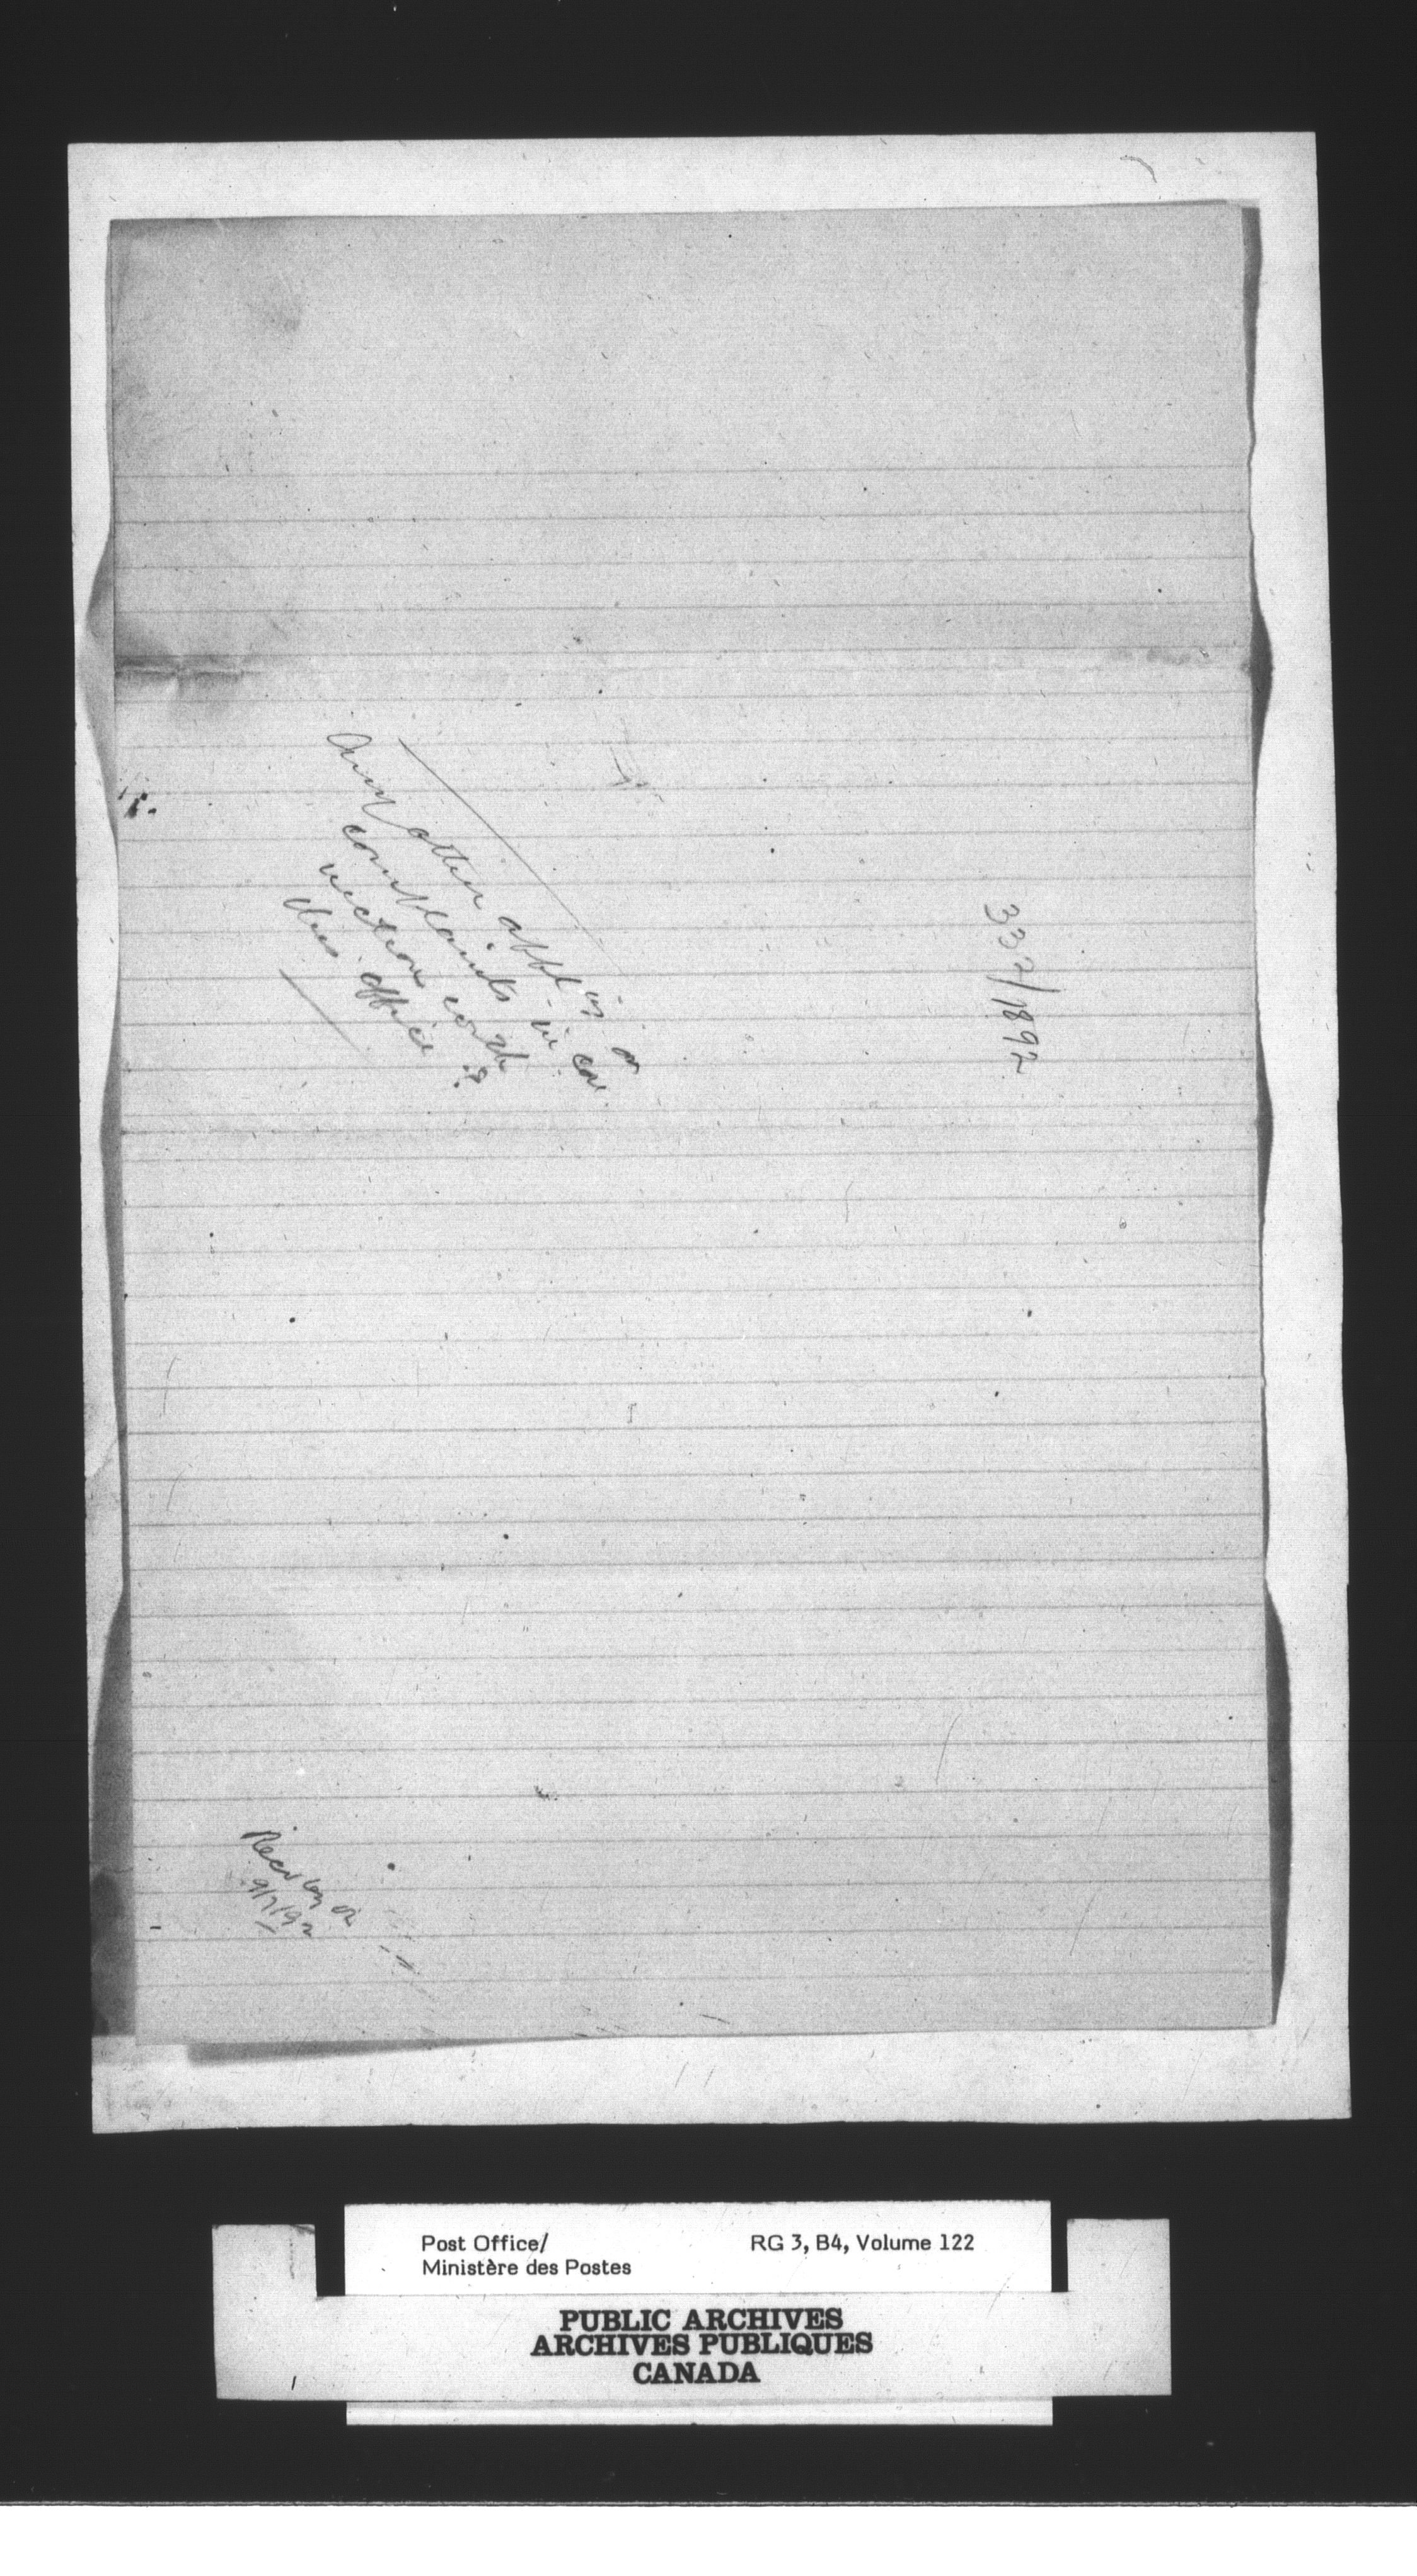 Any other appl'ns or
complaints in con
nection with
this office ?
337/1892
Recd by
9/7/92
Post Office/
Ministère des Postes
RG 3, B4, Volume 122
PUBLIC ARCHIVES
ARCHIVES PUBLIQUES
CANADA